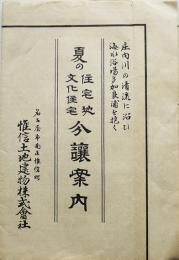 庄内川の清流に沿ひ
海水浴場多加良浦を抱く
夏の住宅地文化住宅分譲案内
名古屋市南区惟信町
惟信土地建物株式會社